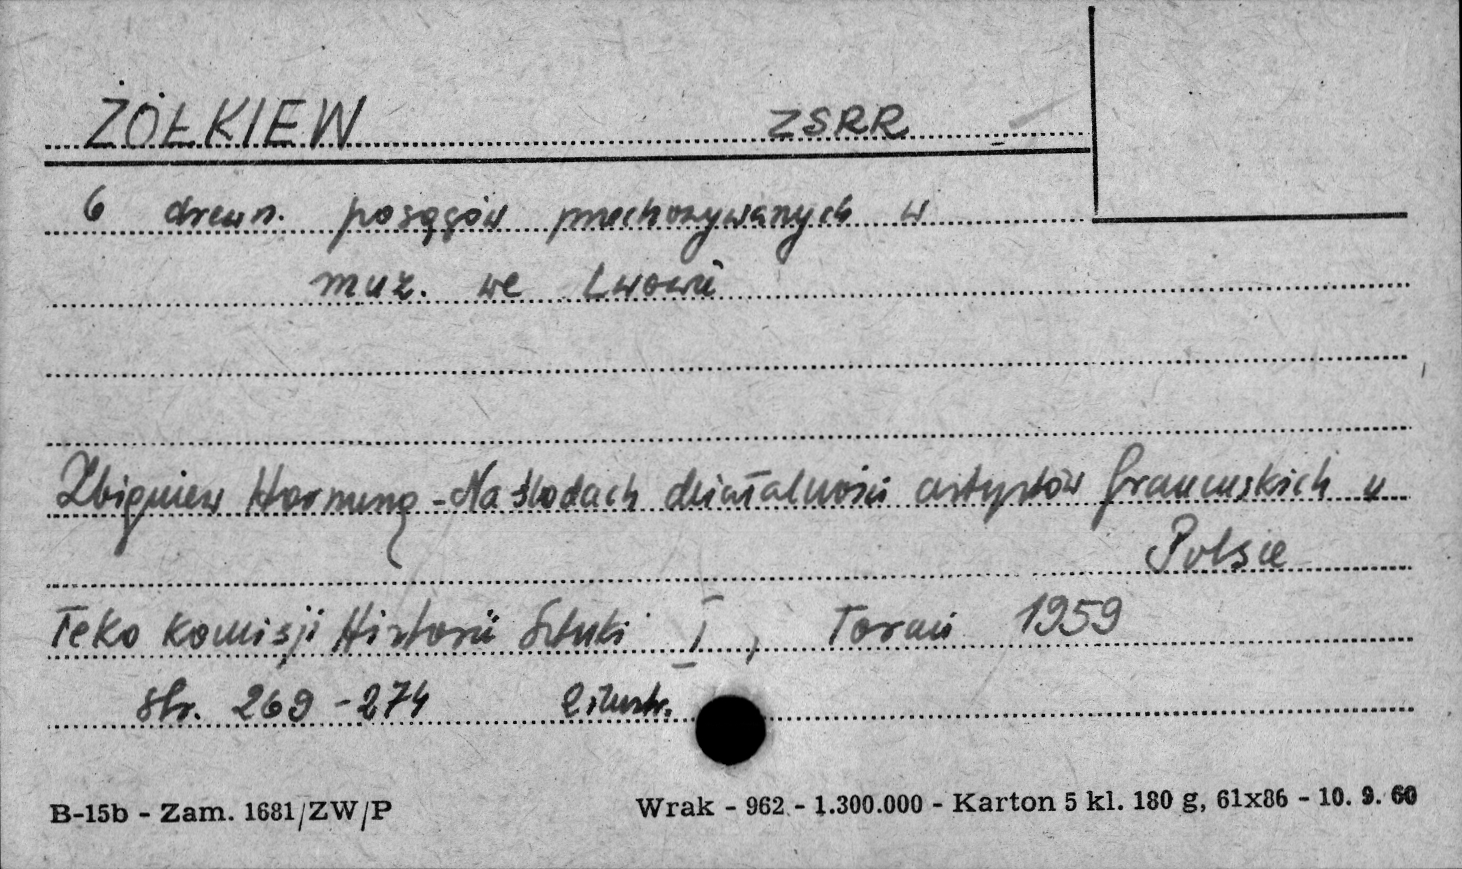 ŻÓŁKIEW ZSRR
6 drewn. posągów przechowywanych w
muz. we Lwowie
Zbigniew Hornung - Na śladach działalności artystów francuskich w
Polsce
Teka Komisji Historii Sztuki I, Toruń 1959
str. 269-274 ilustr.
B-15b - Zam. 1681/ZW/P Wrak - 962 - 1.300.000 - Karton 5 kl. 180 g, 61x86 - 10. 9. 60